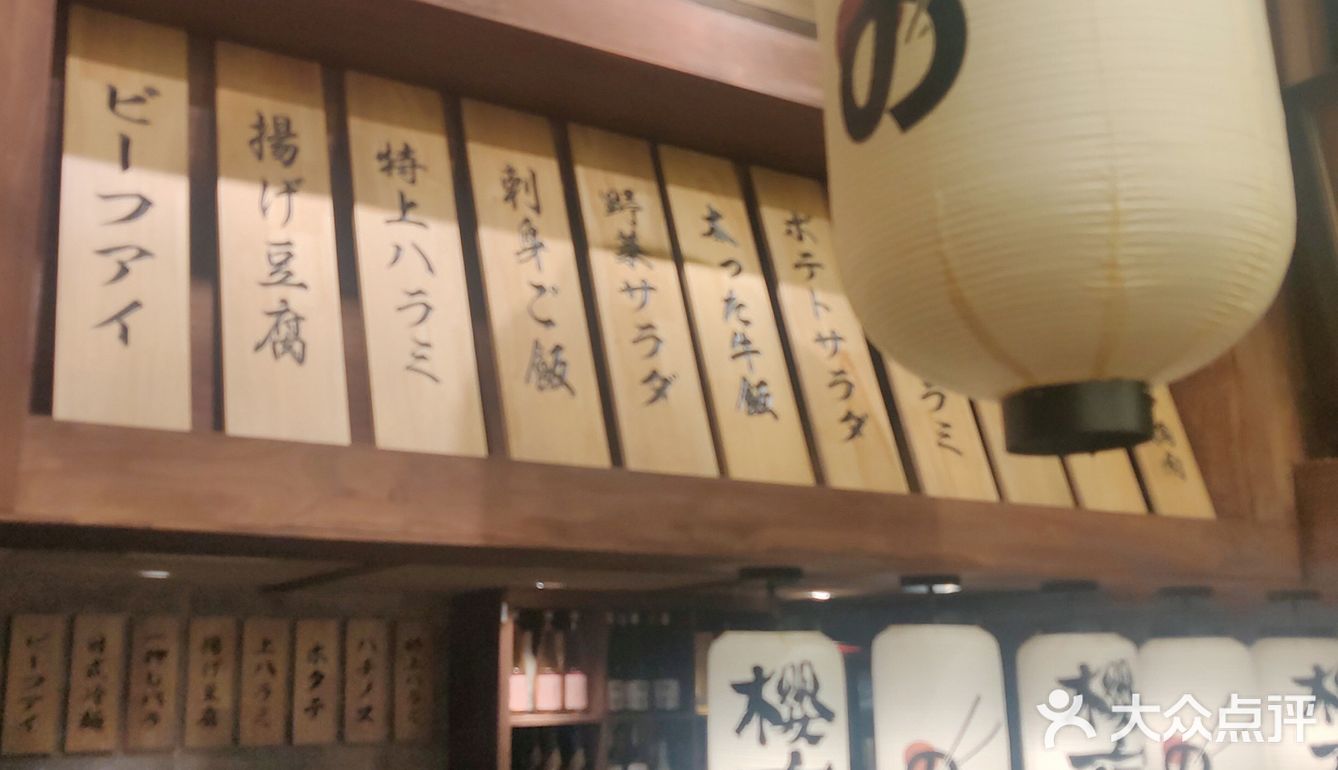 ビーフアイ
揚げ豆腐
特上ハラミ
刺身ご飯
野菜サラダ
太った牛飯
ポテトサラダ
ラミ
の
ビーフアイ
揚げ豆腐
上ハラミ
ホタテ
ハチノス
櫻
の
櫻
の
大众点评